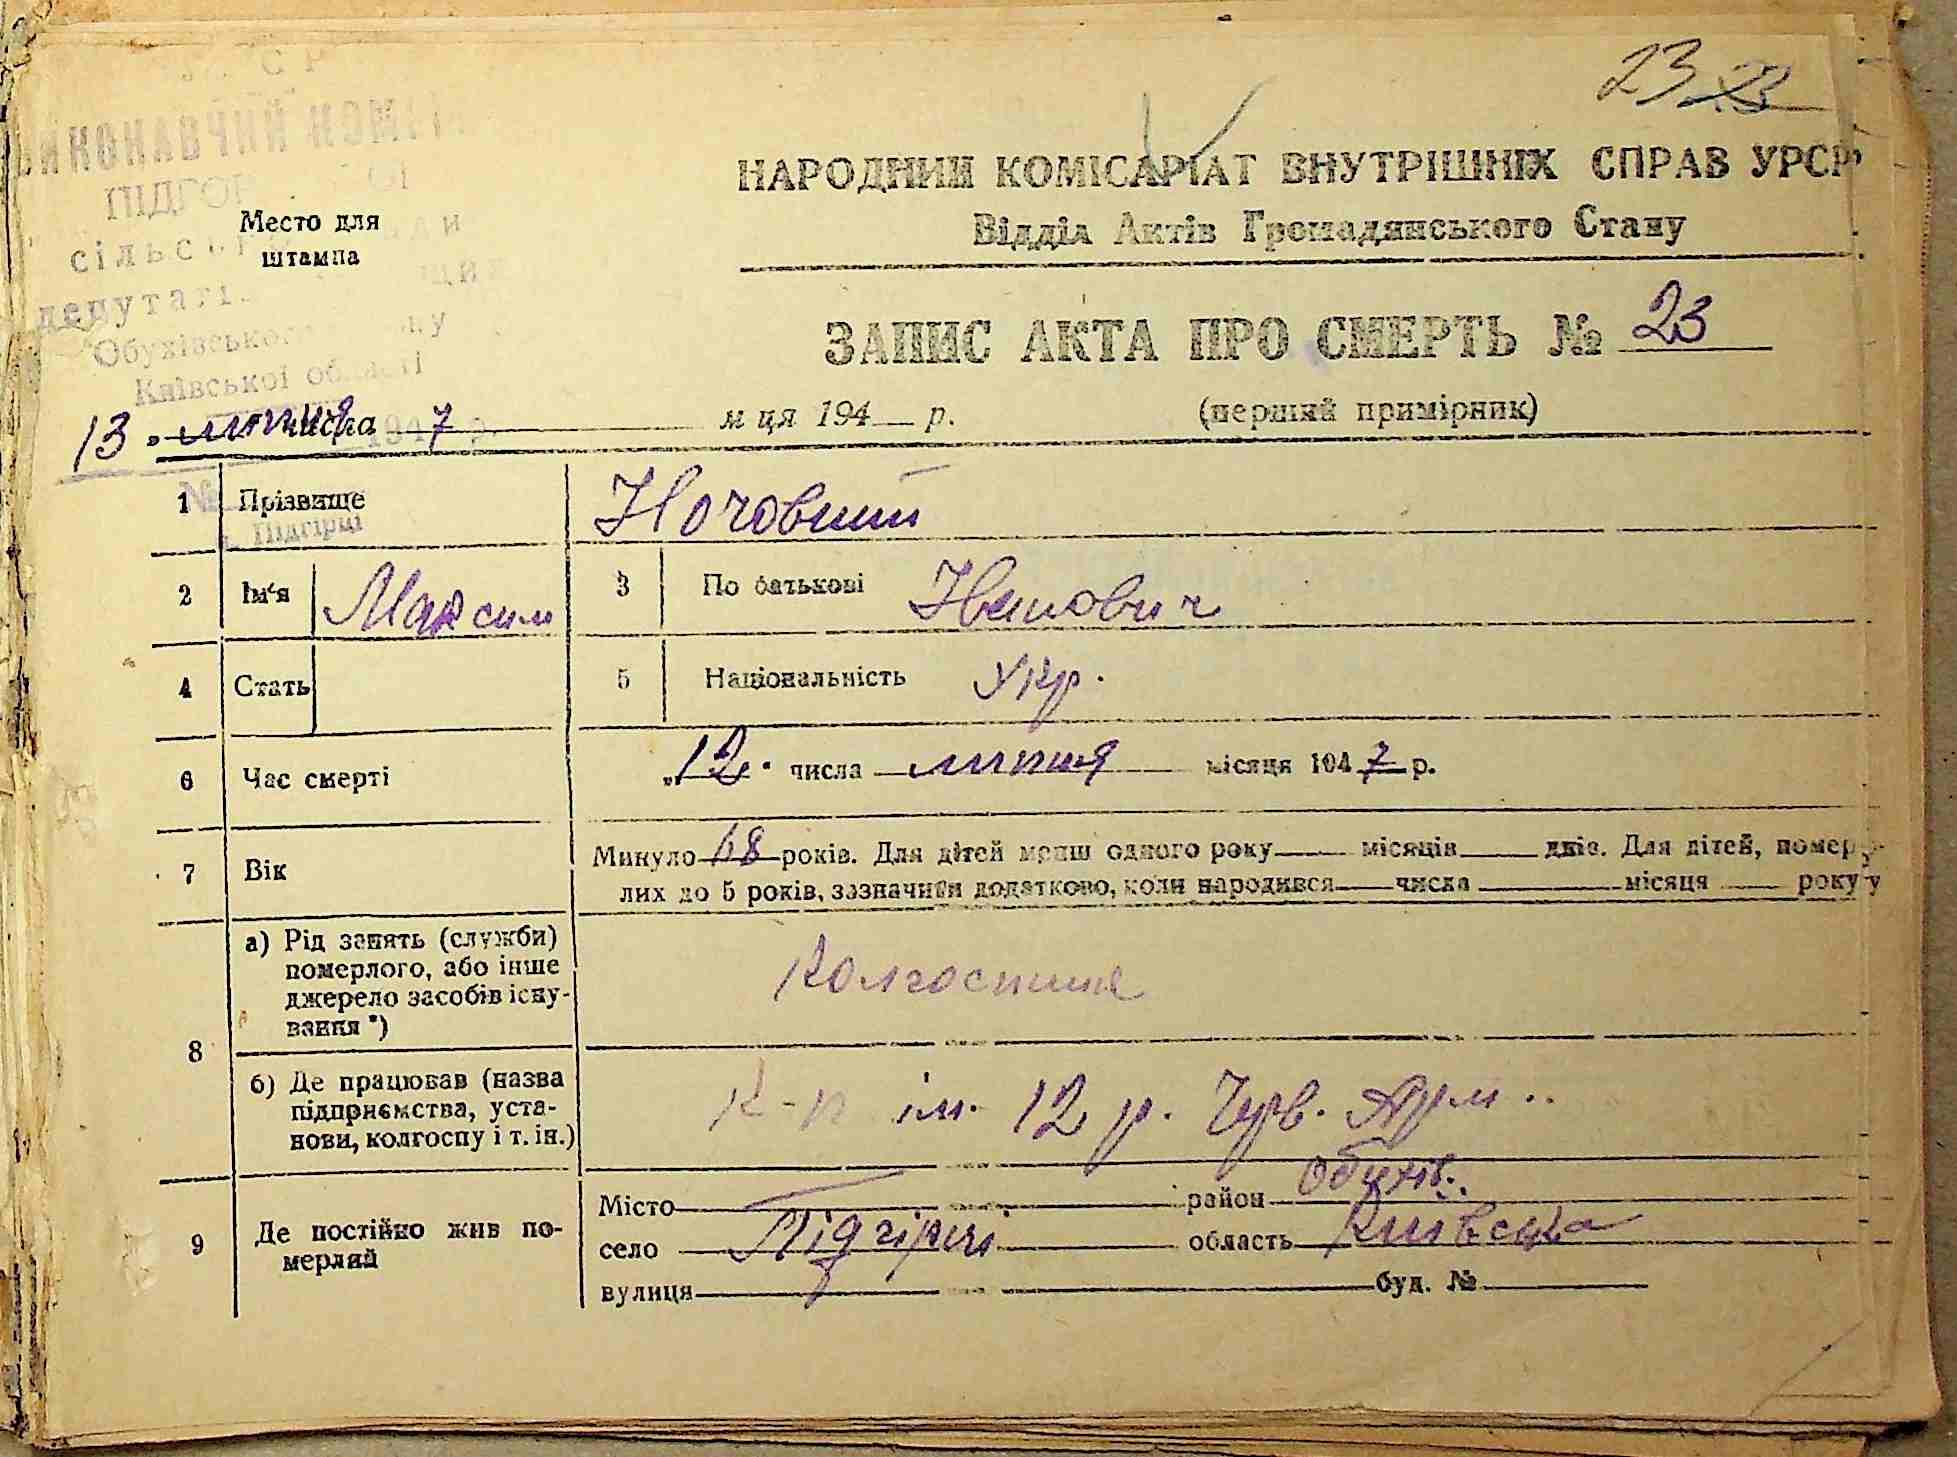 23 23
Місто для
штампа
НАРОДНИЙ КОМІСАРІАТ ВНУТРІШНІХ СПРАВ УРСР
Відділ Актів Громадянського Стану
сільської
депутатів
Обухівського
Київської області
ЗАПИС АКТА ПРО СМЕРТЬ № 23
13 липня числа 7 м ця 194 р. (перший примірник)
№
Підгірці
1 Прізвище Ночовний
2 Ім'я Максим 3 По батькові Іванович
4 Стать 5 Національність Укр.
6 Час смерті „12" числа липня місяця 1947 р.
7 Вік Минуло 68 років. Для дітей менш одного року місяців днів. Для дітей, помер-
лих до 5 років, зазначити додатково, коли народився числа місяця року
8 а) Рід занять (служби)
померлого, або інше
джерело засобів існу-
вання *)
Колгоспник
б) Де працював (назва
підприємства, уста-
нови, колгоспу і т. ін.)
К-п ім. 12 р. Черв. Арм..
9 Де постійно жив по-
мерлий
Місто район Обухів.
село Підгірці область Київська
вулиця буд. №